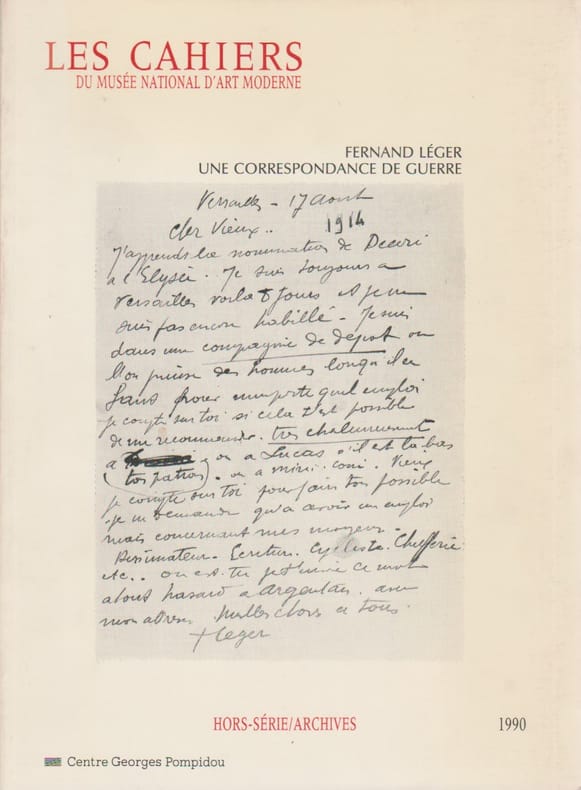 LES CAHIERS
DU MUSÉE NATIONAL D'ART MODERNE
FERNAND LÉGER
UNE CORRESPONDANCE DE GUERRE
Versailles - 17 aout
1914
Cher Vieux..
J'apprends la nomination de
a l'Elysée. Je suis toujours a
Versailles voila 8 jours et je ne
suis pas encore habillé - Je suis
dans une compagnie de depot ou
l'on puise des hommes lorsqu'il en
faut pour n'importe quel emploi
je compte sur toi si cela t'est possible
de me recommander tres chaleureusement
a ou a Lucas s'il est la bas
(ton patron) - ou a Vieux
je compte sur toi pour faire ton possible
je ne demande qu'a avoir un emploi
mais concernant mes moyens -
Dessinateur - Cycliste.
etc.. ou es tu je t'envoie ce mot
a tout hasard a Argentan avec
mon adresse. Meilleures choses a tous.
FLeger
HORS-SÉRIE/ARCHIVES
1990
Centre Georges Pompidou